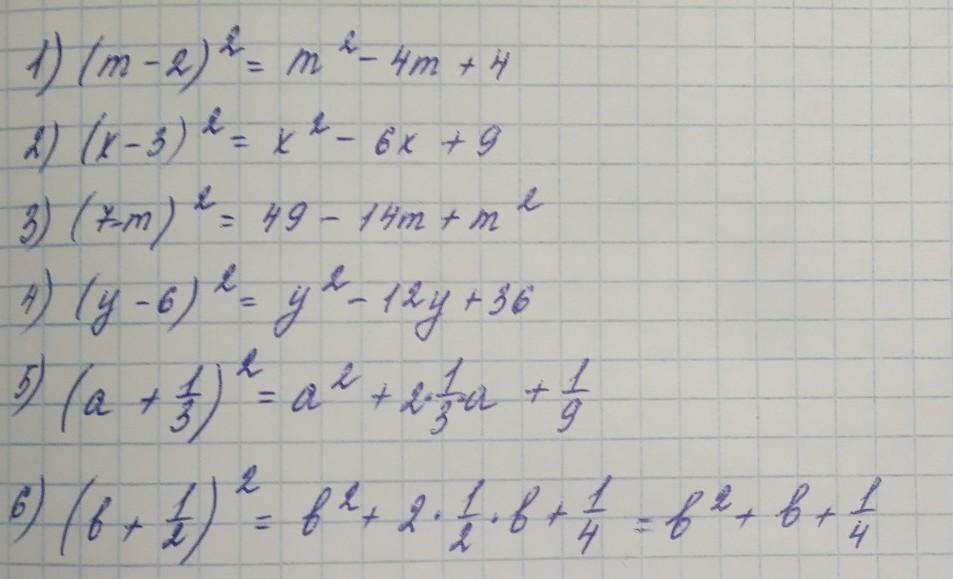 1) (m - 2)² = m² - 4m + 4
2) (x - 3)² = x² - 6x + 9
3) (7-m)² = 49 - 14m + m²
4) (y - 6)² = y² - 12y + 36
5) (a + 1/3)² = a² + 2·1/3·a + 1/9
6) (b + 1/2)² = b² + 2·1/2·b + 1/4 = b² + b + 1/4